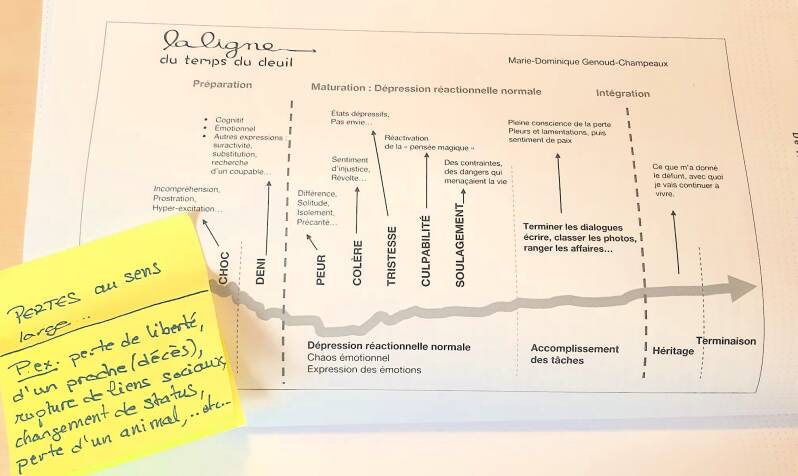 la ligne
du temps du deuil
Marie-Dominique Genoud-Champeaux
Préparation
Maturation : Dépression réactionnelle normale
Intégration
• Cognitif
• Émotionnel
• Autres expressions :
suractivité,
substitution,
recherche
d'un coupable...
Incompréhension,
Prostration,
Hyper-excitation...
États dépressifs,
Pas envie...
Réactivation
de la « pensée magique »
Sentiment
d'injustice,
Révolte...
Différence,
Solitude,
Isolement,
Précarité...
Des contraintes,
des dangers qui
menaçaient la vie
Pleine conscience de la perte
Pleurs et lamentations, puis
sentiment de paix
Ce que m'a donné
le défunt, avec quoi
je vais continuer à
vivre.
Terminer les dialogues
écrire, classer les photos,
ranger les affaires...
CHOC
DENI
PEUR
COLÈRE
TRISTESSE
CULPABILITÉ
SOULAGEMENT
Dépression réactionnelle normale
Chaos émotionnel
Expression des émotions
Accomplissement
des tâches
Héritage
Terminaison
PERTES au sens
large...
P.ex: perte de liberté,
d'un proche (décès),
rupture de liens sociaux,
changement de status,
perte d'un animal,...etc...